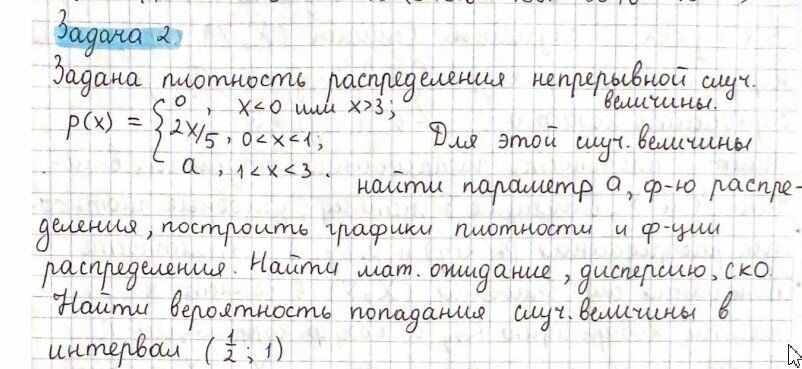 Задача 2.
Задана плотность распределения непрерывной случ. величины.
p(x) = { 0 , x<0 или x>3;
2x/5 , 0<x<1;
a , 1<x<3 .
Для этой случ. величины
найти параметр a, ф-ю распре-
деления, построить графики плотности и ф-ции
распределения. Найти мат. ожидание, дисперсию, ско.
Найти вероятность попадания случ. величины в
интервал (1/2 ; 1)